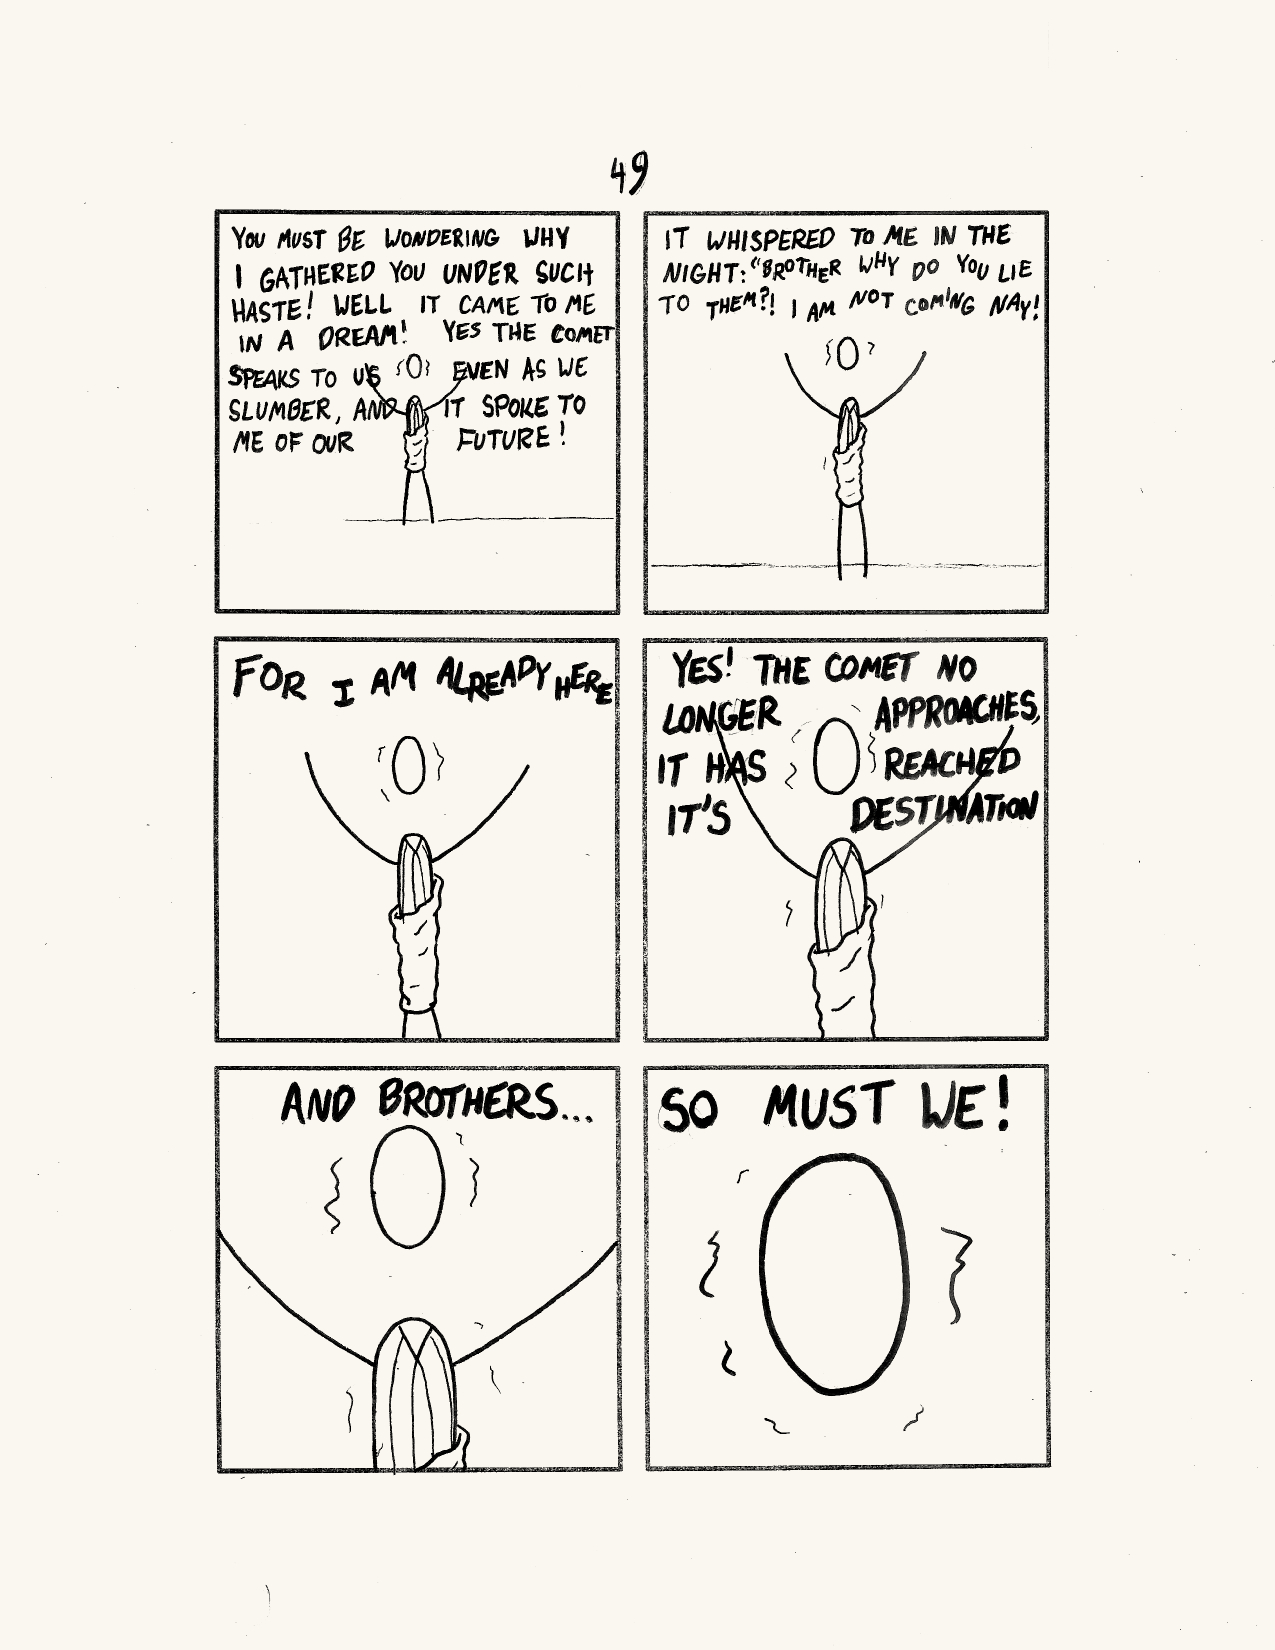 49
YOU MUST BE WONDERING WHY
I GATHERED YOU UNDER SUCH
HASTE! WELL IT CAME TO ME
IN A DREAM! YES THE COMET
SPEAKS TO US EVEN AS WE
SLUMBER, AND IT SPOKE TO
ME OF OUR FUTURE!
IT WHISPERED TO ME IN THE
NIGHT: "BROTHER WHY DO YOU LIE
TO THEM?! I AM NOT COMING NAY!
FOR I AM ALREADY HERE
YES! THE COMET NO
LONGER APPROACHES,
IT HAS REACHED
IT'S DESTINATION
AND BROTHERS...
SO MUST WE!